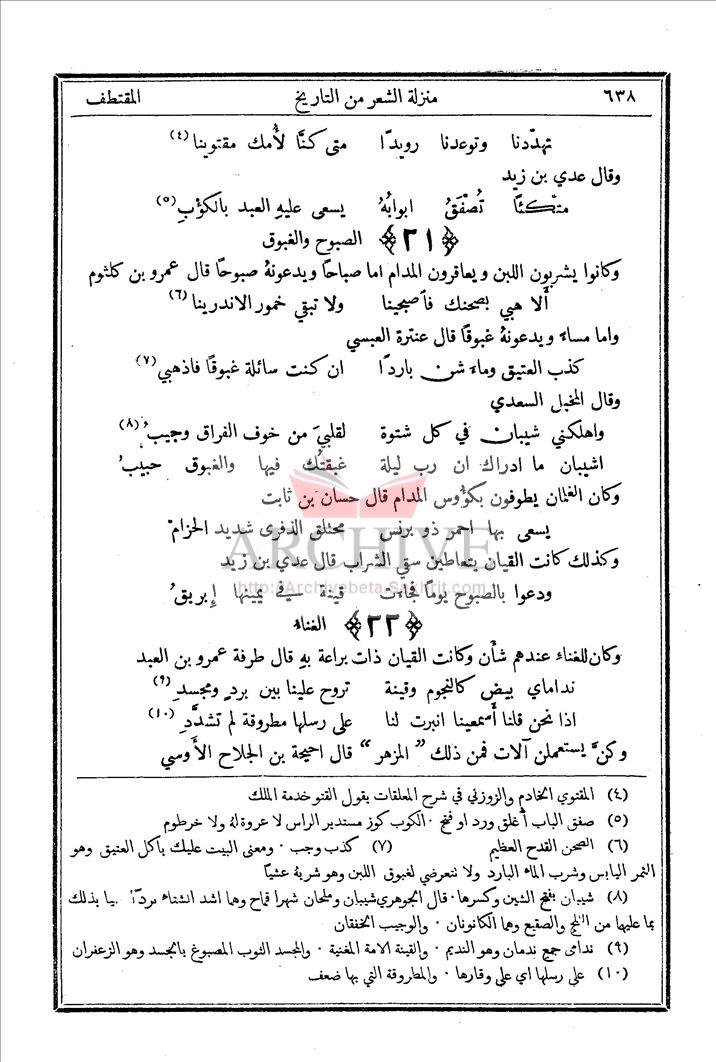 ٦٣٨ منزلة الشعر من التاريخ المقتطف
تهدّدنا وتوعدنا رويدًا متى كنّا لأمك مقتوينا (٤)
وقال عدي بن زيد
متكئًا تُصْفَقُ ابوابهُ يسعى عليهِ العبد بالكؤبِ (٥)
﴿ ٢١ ﴾ الصبوح والغبوق
وكانوا يشربون اللبن ويعاقرون المدام اما صباحًا ويدعونهُ صبوحًا قال عمرو بن كلثوم
ألا هبي بصحنك فاصبحينا ولا تبقي خمور الاندرينا (٦)
واما مساءً ويدعونهُ غبوقًا قال عنترة العبسي
كذب العتيق وماء شن باردًا ان كنت سائلة غبوقًا فاذهبي (٧)
وقال المخبل السعدي
واهلكني شيبان في كل شتوة لقلبيَ من خوف الفراق وجيبُ (٨)
اشيبان ما ادراك ان رب ليلة غبقتك فيها والغبوق حبيبُ
وكان الغلمان يطوفون بكؤوس المدام قال حسان بن ثابت
يسعى بها احمر ذو برنس مختلق الذفرى شديد الحزام
وكذلك كانت القيان يتعاطين سقي الشراب قال عدي بن زيد
ودعوا بالصبوح يومًا فجاءت قينة في يمينها إبريقُ
ARCHIVE
http://Archivebeta.Sakhrit.com
﴿ ٢٢ ﴾ الغناء
وكان للغناء عندهم شأن وكانت القيان ذات براعة بهِ قال طرفة عمرو بن العبد
نداماي بيض كالنجوم وقينة تروح علينا بين بردٍ ومجسدِ (٩)
اذا نحن قلنا أسمعينا انبرت لنا على رسلها مطروقة لم تشدَّدِ (١٠)
وكنَّ يستعملن آلات فمن ذلك "المزهر" قال احيحة بن الجلاح الأوسي
(٤) المقتوي الخادم والزوزني في شرح المعلقات يقول القتو خدمة الملك
(٥) صفق الباب أغلق ورد او فتح ٠ الكوب كوز مستدير الراس لا عروة له ولا خرطوم
(٦) الصحن القدح العظيم (٧) كذب وجب ٠ ومعنى البيت عليك بأكل العتيق وهو
التمر اليابس وشرب الماء البارد ولا تتعرضي لغبوق اللبن وهو شربهُ عشيًا
(٨) شيبان بفتح الشين وكسرها ٠ قال الجوهري شيبان وملحان شهرا قماح وهما اشد الشتاء بردًا سميا بذلك
بما عليهما من الثلج والصقيع وهما الكانونان ٠ والوجيب الخفقان
(٩) ندامى جمع ندمان وهو النديم ٠ والقينة الامة المغنية ٠ والمجسد الثوب المصبوغ بالجسد وهو الزعفران
(١٠) على رسلها اي على وقارها ٠ والمطروقة التي بها ضعف